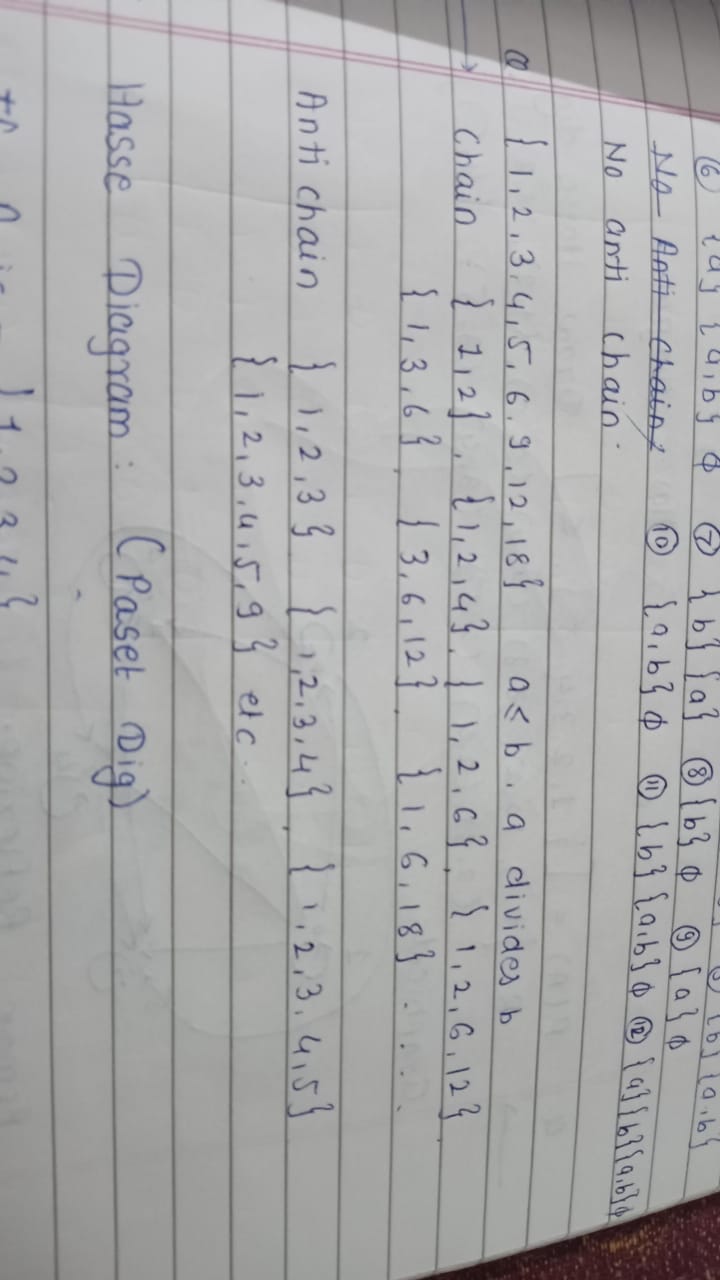 ⑥ {a} {a,b} ϕ ⑦ {b} {a} ⑧ {b} ϕ ⑨ {a} ϕ {b} {a,b}
No Anti Chain, ⑩ {a,b} ϕ ⑪ {b} {a,b} ϕ ⑫ {a}{b}{a,b}ϕ
No anti chain.
Q {1,2,3,4,5,6,9,12,18} a ≤ b . a divides b
→ Chain {1,2}, {1,2,4}, {1,2,6}, {1,2,6,12},
{1,3,6}, {3,6,12}, {1,6,18} ....
Anti chain {1,2,3} {1,2,3,4}, {1,2,3,4,5}
{1,2,3,4,5,9} etc..
Hasse Diagram: (Paset Dig)
{1,2,3,4}